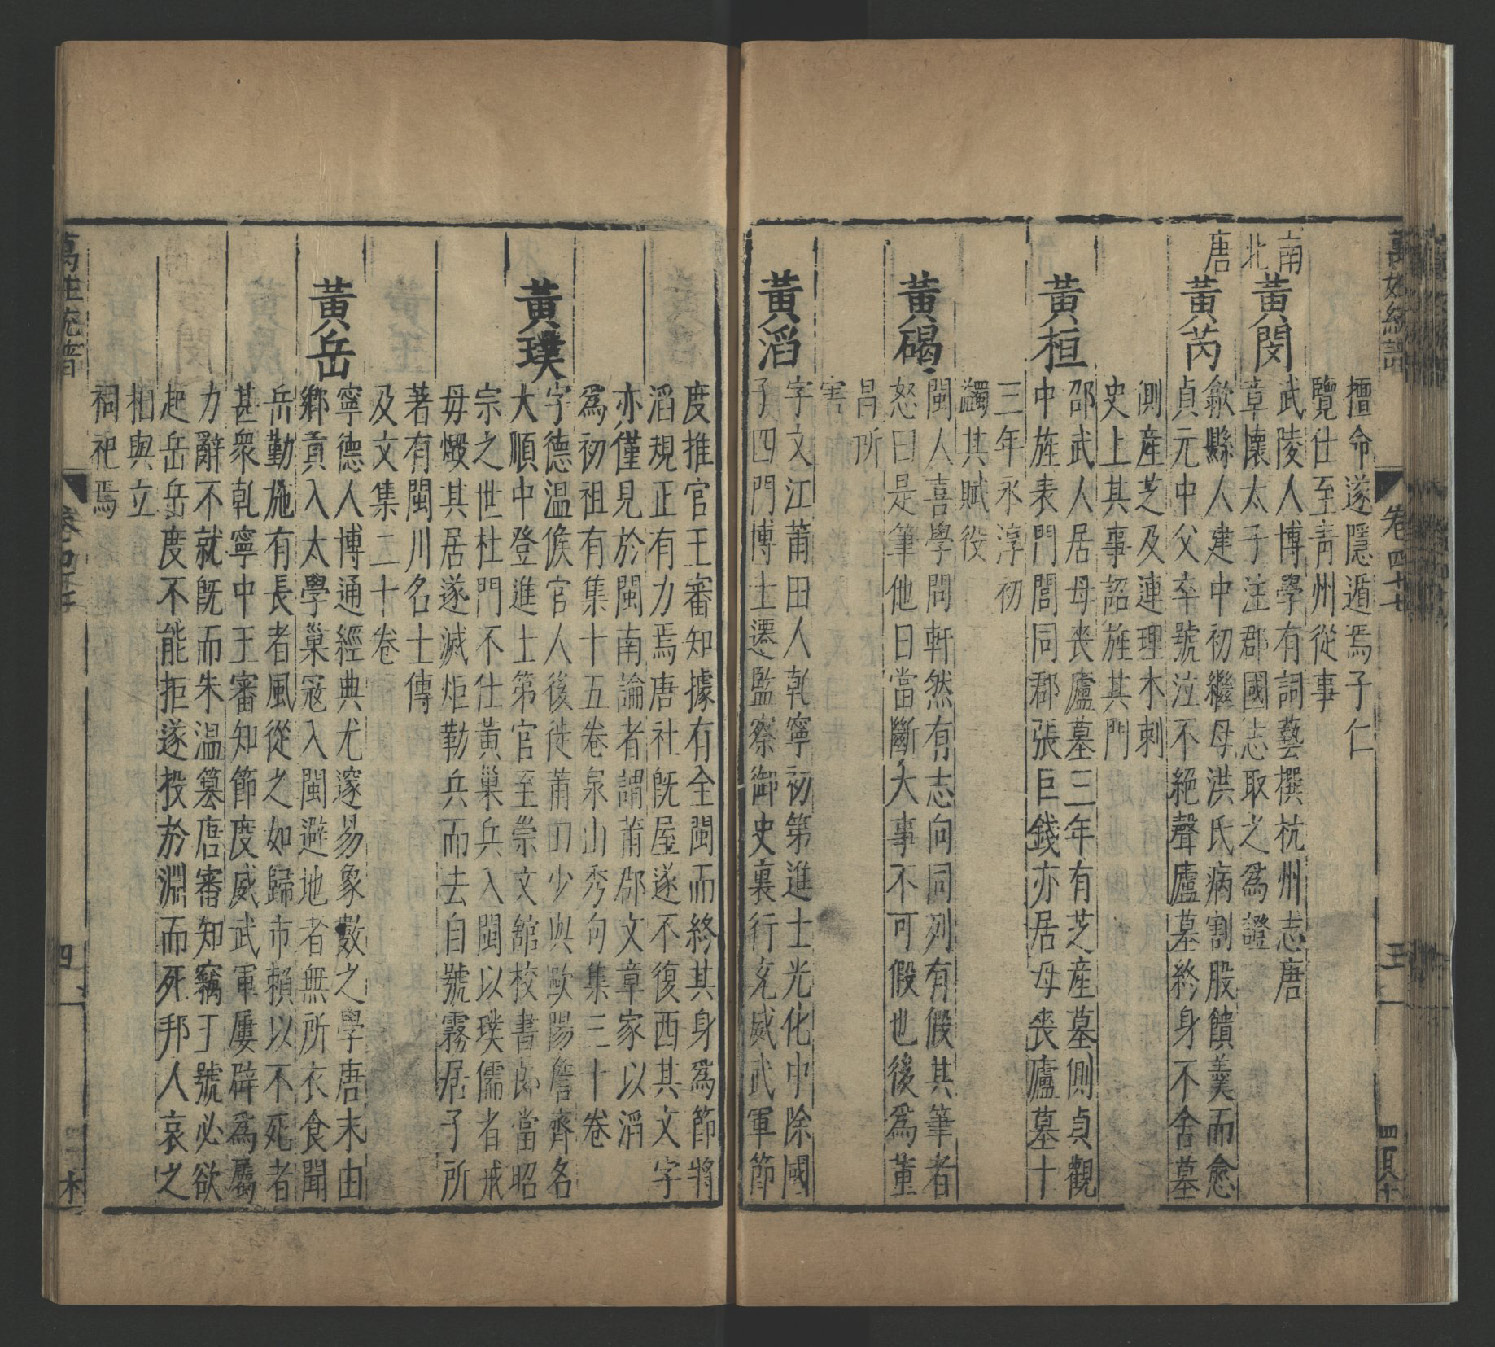 萬姓統譜
卷四十七
三
擅命遂隱遁焉子仁
覽仕至青州從事
南
黃閔
武陵人博學有詞藝撰杭州志唐
北
章懷太子注郡國志取之爲證
唐
黃芮
歙縣人建中初繼母洪氏病割股饋羹而愈
貞元中父卒號泣不絕聲廬墓終身不舍墓
側產芝及連理木刺
史上其事詔旌其門
黃桓
邵武人居母喪廬墓三年有芝產墓側貞觀
中旌表門閭同郡張巨錢亦居母喪廬墓十
三年永淳初
蠲其賦役
黃碣
閩人喜學問軒然有志向同列有假其筆者
怒曰是筆他日當斷大事不可假也後爲董
昌所
害
黃滔
字文江莆田人乾寧初第進士光化中除國
子四門博士遷監察御史裏行充威武軍節
度推官王審知據有全閩而終其身爲節將
滔規正有力焉唐社旣屋遂不復西其文字
亦僅見於閩南論者謂莆郡文章家以滔
爲初祖有集十五卷泉山秀句集三十卷
黃璞
字德溫侯官人後徙莆田少與歐陽詹齊名
大順中登進士第官至崇文館校書郎當昭
宗之世杜門不仕黃巢兵入閩以璞儒者戒
毋燬其居遂滅炬勒兵而去自號霧居子所
著有閩川名士傳
及文集二十卷
黃岳
寧德人博通經典尤邃易象數之學唐末由
鄉貢入太學巢寇入閩避地者無所衣食聞
岳勤施有長者風從之如歸市賴以不死者
甚衆乾寧中王審知節度威武軍屢辟爲屬
力辭不就旣而朱溫簒唐審知竊于號必欲
起岳岳度不能拒遂投於淵而死邦人哀之
相與立
祠祀焉
萬姓統普
四